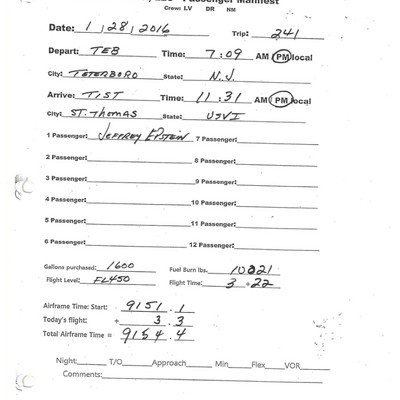 Passenger Manifest
Crew: LV DR NM
Date: 1 / 28 / 2016 Trip: 241
Depart: TEB Time: 7:09 AM PM local
City: TETERBORO State: N.J
Arrive: TIST Time: 11:31 AM PM local
City: ST. THOMAS State: USVI
1 Passenger: JEFFREY EPSTEIN 7 Passenger:
2 Passenger: 8 Passenger:
3 Passenger: 9 Passenger:
4 Passenger: 10 Passenger:
5 Passenger: 11 Passenger:
6 Passenger: 12 Passenger:
Gallons purchased: 1600 Fuel Burn lbs. 10821
Flight Level: FL450 Flight Time: 3 + 22
Airframe Time: Start: 9151 . 1
Today's flight: + 3 . 3
Total Airframe Time = 9154 . 4
Night: T/O Approach Min Flex VOR
Comments: